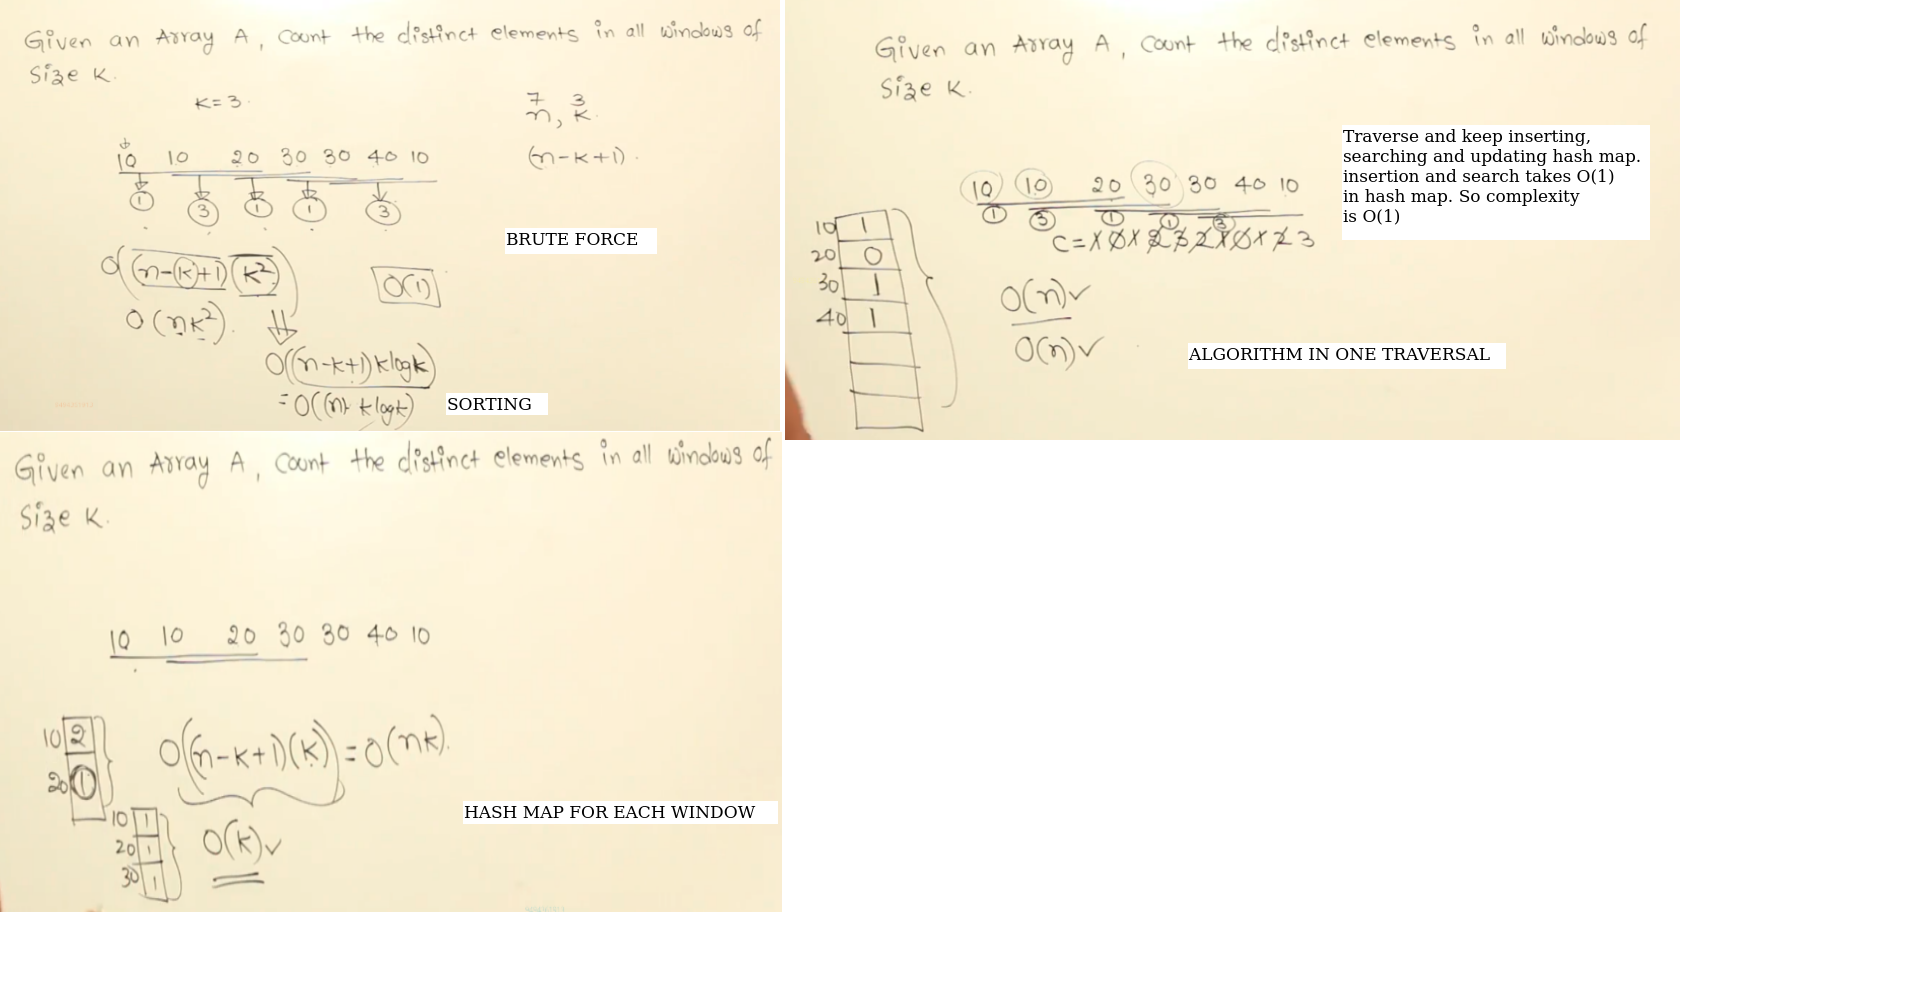 Given an Array A, Count the distinct elements in all windows of
Size K.
K=3
7 3
n, K
(n-K+1)
10 10 20 30 30 40 10
1 3 1 1 3
BRUTE FORCE
O((n-K+1)(K²))
O(1)
O(nK²).
O((n-K+1)KlogK)
= O((n) KlogK)
SORTING
Given an Array A, Count the distinct elements in all windows of
Size K.
Traverse and keep inserting,
searching and updating hash map.
insertion and search takes O(1)
in hash map. So complexity
is O(1)
10 10 20 30 30 40 10
1 3 1 1 3
10 1
20 0
30 1
40 1
O(n)✓
O(n)✓
ALGORITHM IN ONE TRAVERSAL
Given an Array A, Count the distinct elements in all windows of
Size K.
10 10 20 30 30 40 10
10 2
20 1
O((n-K+1)(K)) = O(nK).
HASH MAP FOR EACH WINDOW
10 1
20 1
30 1
O(K)✓